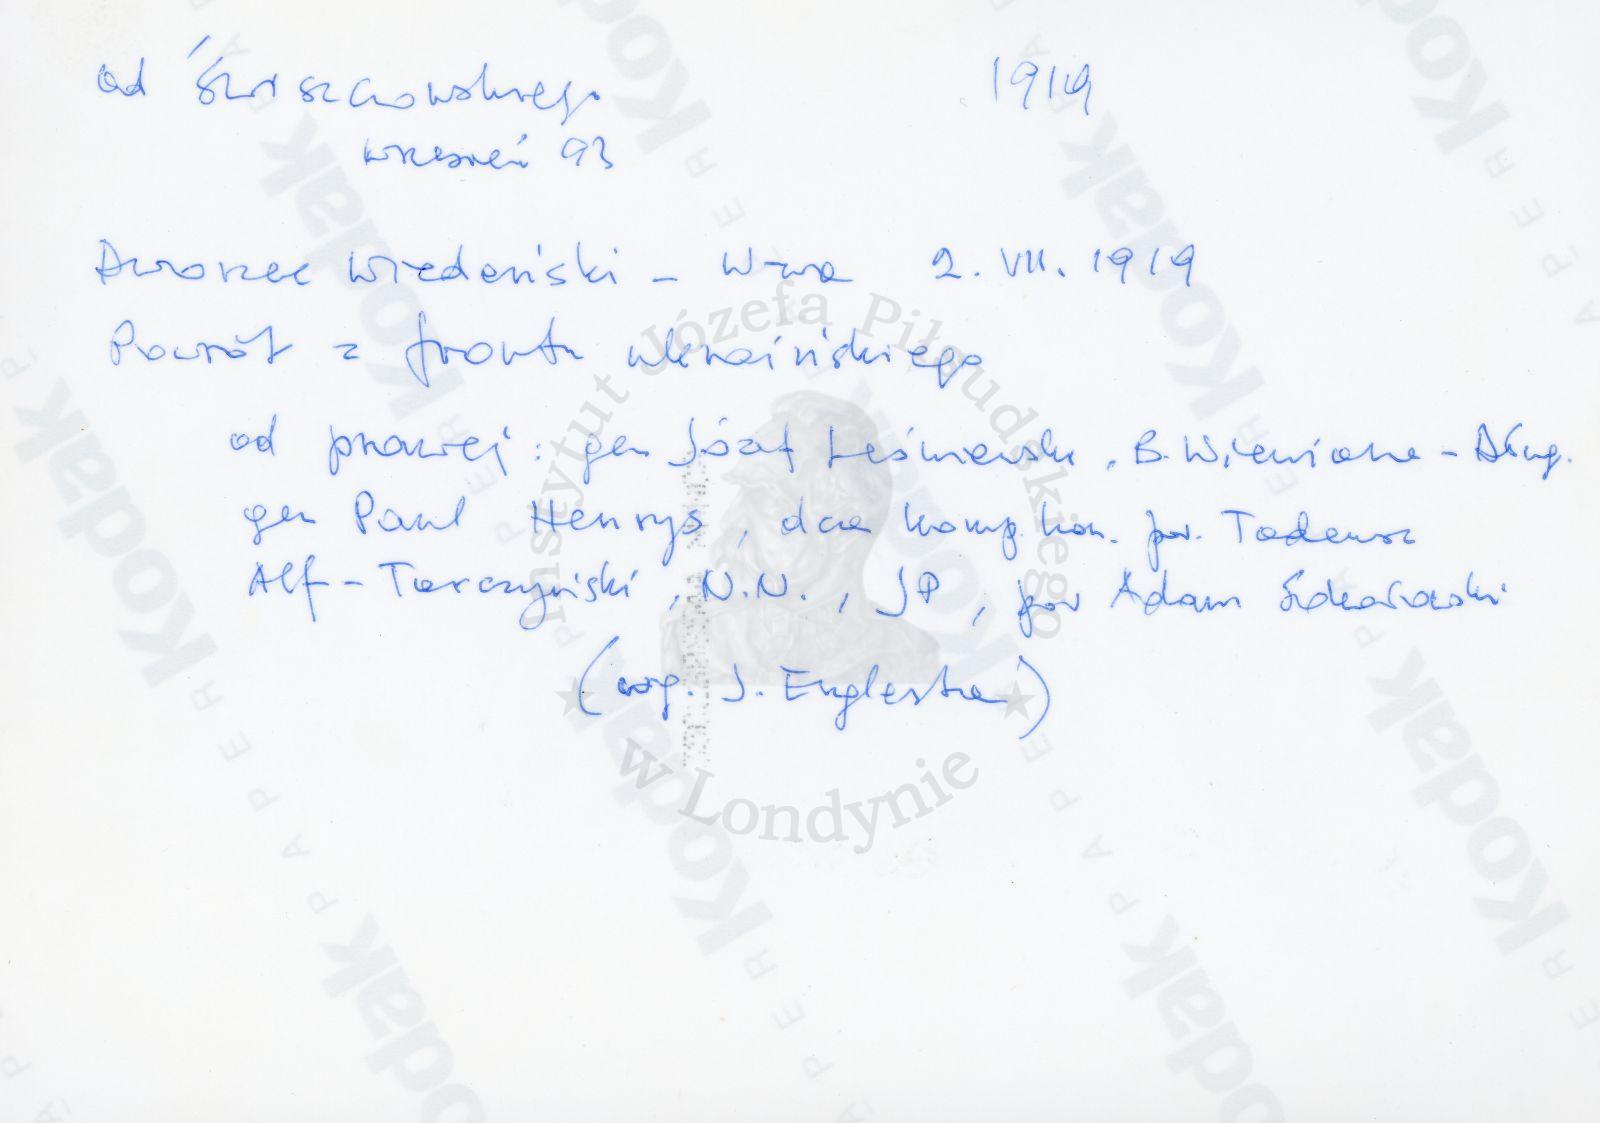 od Świszczowskiego 1919
wrzesień 93
Dworzec Wiedeński – W-wa 2. VII. 1919
Powrót z frontu ukraińskiego
od prawej: gen Józef Leśniewski, B. Wieniawa – Dług.
gen Paul Henrys, dca komp. kon. por. Tadeusz
Alf – Tarczyński, N.N., JP, por Adam
(wg. J. Englerta)
Instytut Józefa Piłsudskiego
w Londynie
Kodak
PAPER